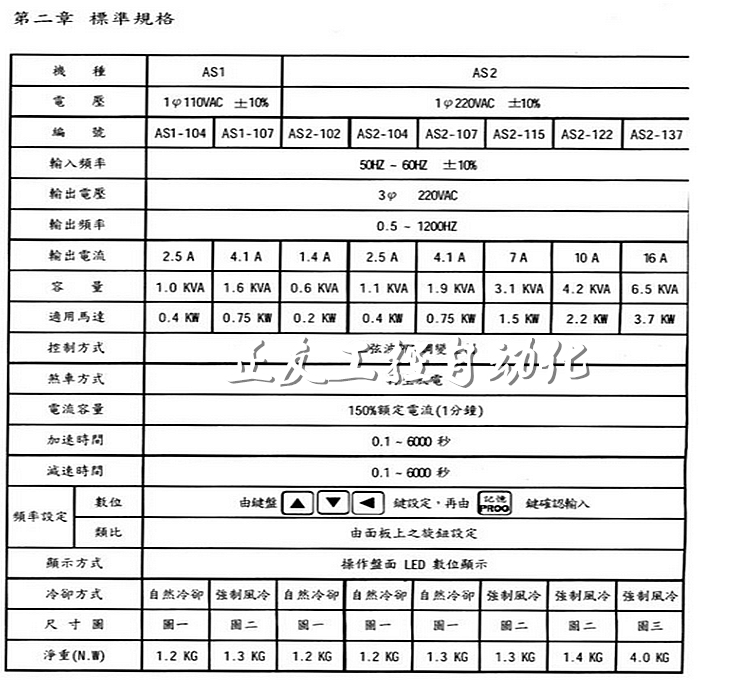 第二章 標準規格
機 種 AS1 AS2
電 壓 1φ110VAC ±10% 1φ220VAC ±10%
編 號 AS1-104 AS1-107 AS2-102 AS2-104 AS2-107 AS2-115 AS2-122 AS2-137
輸入頻率 50HZ ~ 60HZ ±10%
輸出電壓 3φ 220VAC
輸出頻率 0.5 ~ 1200HZ
輸出電流 2.5 A 4.1 A 1.4 A 2.5 A 4.1 A 7 A 10 A 16 A
容 量 1.0 KVA 1.6 KVA 0.6 KVA 1.1 KVA 1.9 KVA 3.1 KVA 4.2 KVA 6.5 KVA
適用馬達 0.4 KW 0.75 KW 0.2 KW 0.4 KW 0.75 KW 1.5 KW 2.2 KW 3.7 KW
控制方式
煞車方式
正友工控自动化
電流容量 150%額定電流(1分鐘)
加速時間 0.1 ~ 6000 秒
減速時間 0.1 ~ 6000 秒
頻率設定 數位 由鍵盤 ▲ ▼ ◀ 鍵設定，再由 記憶 PROG 鍵確認輸入
類比 由面板上之旋鈕設定
顯示方式 操作盤面 LED 數位顯示
冷卻方式 自然冷卻 強制風冷 自然冷卻 自然冷卻 自然冷卻 強制風冷 強制風冷 強制風冷
尺 寸 圖 圖一 圖二 圖一 圖一 圖一 圖二 圖二 圖三
淨重(N.W) 1.2 KG 1.3 KG 1.2 KG 1.2 KG 1.3 KG 1.3 KG 1.4 KG 4.0 KG